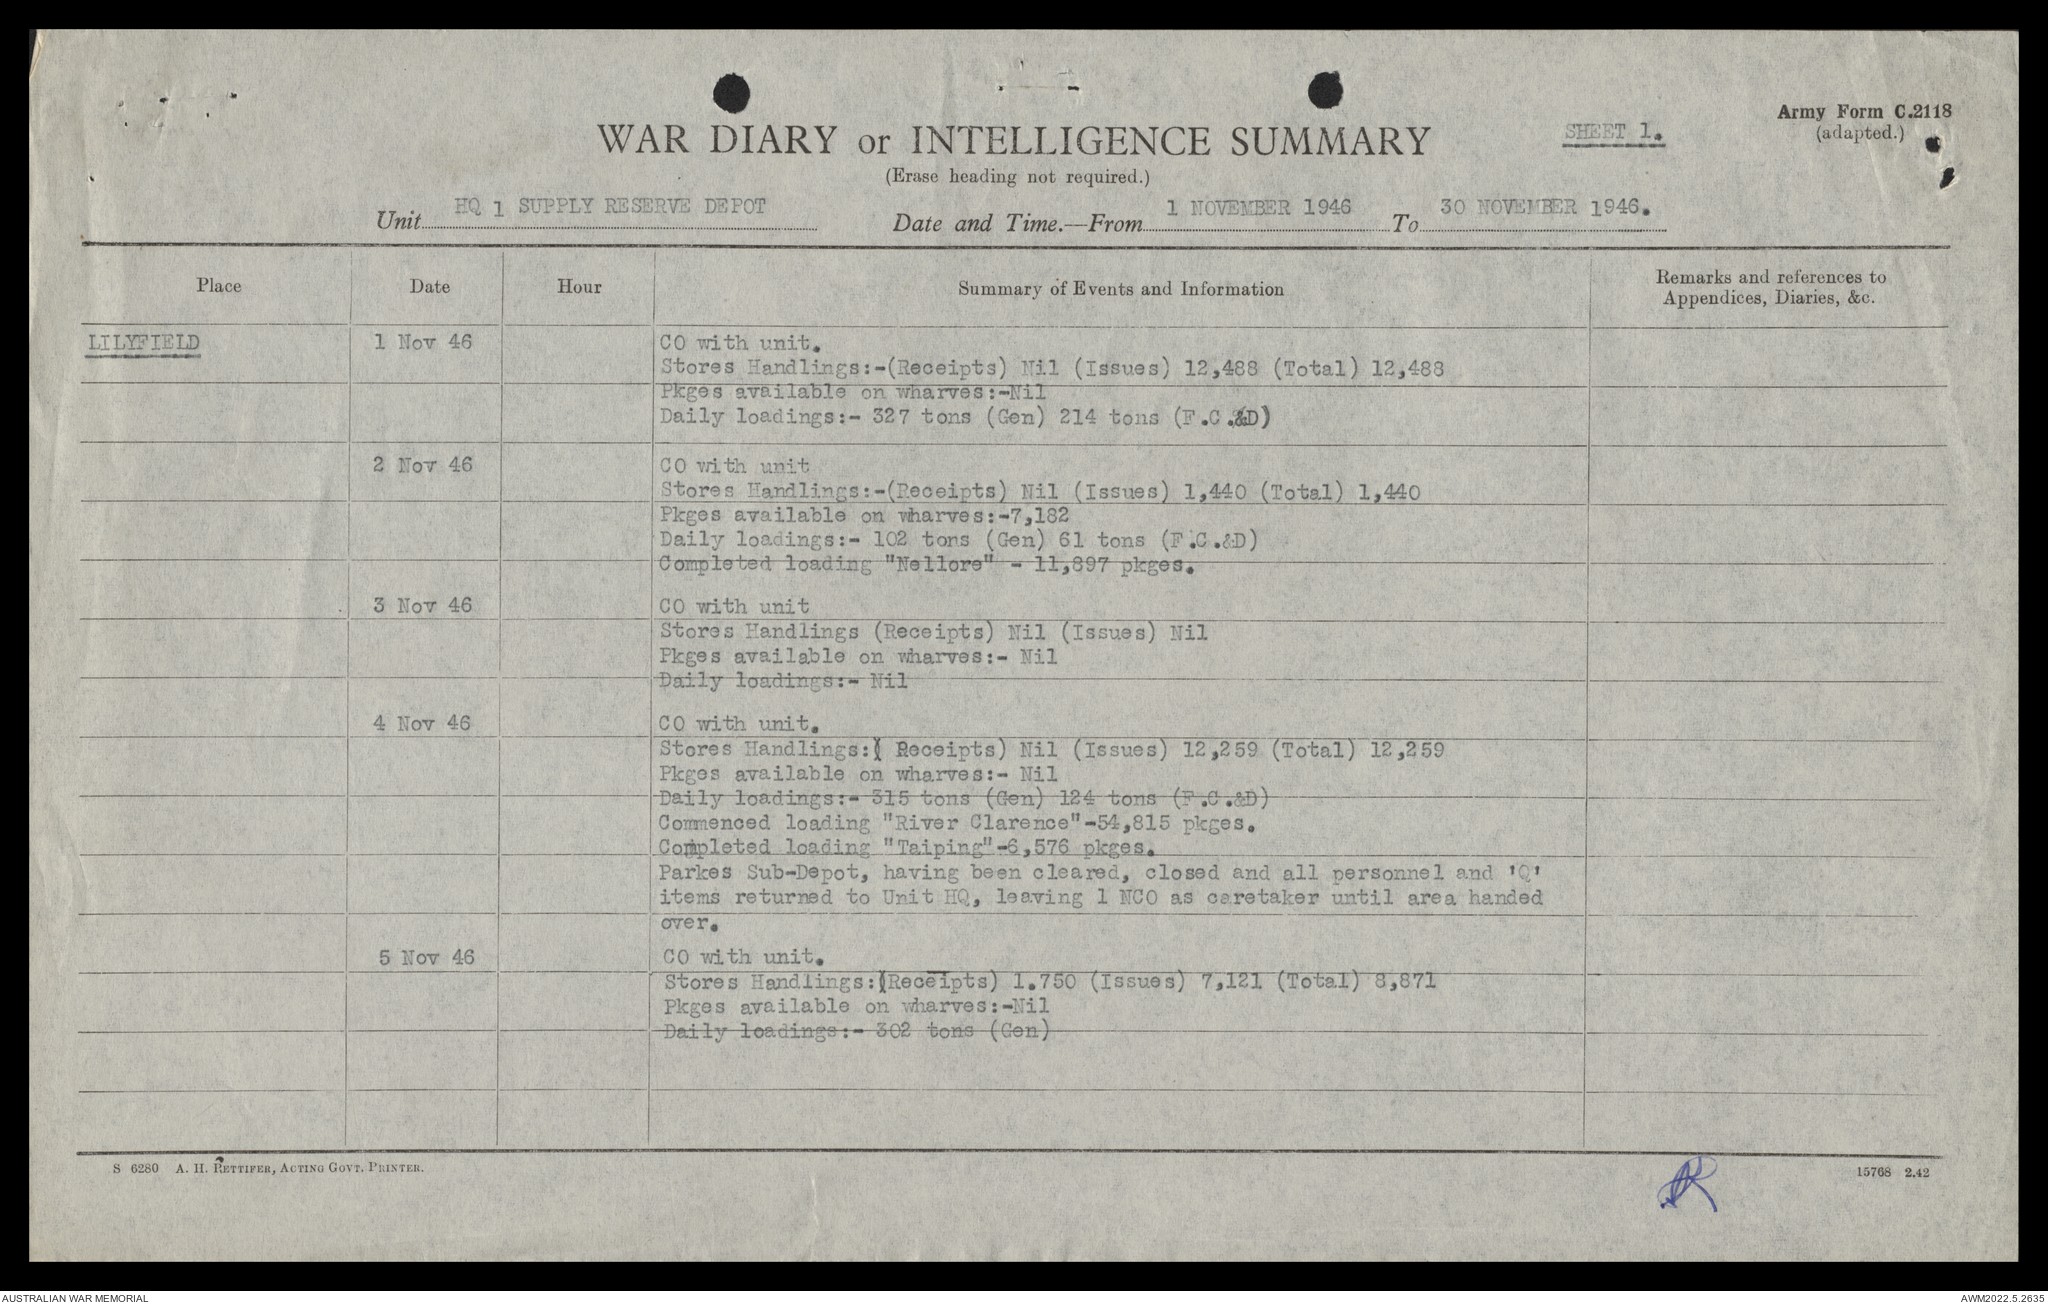 Army Form C.2118
(adapted.)
WAR DIARY or INTELLIGENCE SUMMARY
SHEET 1.
(Erase heading not required.)
Unit HQ 1 SUPPLY RESERVE DEPOT Date and Time.—From 1 NOVEMBER 1946 To 30 NOVEMBER 1946.
Place Date Hour Summary of Events and Information Remarks and references to
Appendices, Diaries, &c.
LILYFIELD 1 Nov 46 CO with unit.
Stores Handlings:-(Receipts) Nil (Issues) 12,488 (Total) 12,488
Pkges available on wharves:-Nil
Daily loadings:- 327 tons (Gen) 214 tons (F.C.&D)
2 Nov 46 CO with unit
Stores Handlings:-(Receipts) Nil (Issues) 1,440 (Total) 1,440
Pkges available on wharves:-7,182
Daily loadings:- 102 tons (Gen) 61 tons (F.C.&D)
Completed loading "Nellore" - 11,897 pkges.
3 Nov 46 CO with unit
Stores Handlings (Receipts) Nil (Issues) Nil
Pkges available on wharves:- Nil
Daily loadings:- Nil
4 Nov 46 CO with unit.
Stores Handlings:( Receipts) Nil (Issues) 12,259 (Total) 12,259
Pkges available on wharves:- Nil
Daily loadings:- 315 tons (Gen) 124 tons (F.C.&D)
Commenced loading "River Clarence"-54,815 pkges.
Completed loading "Taiping"-6,576 pkges.
Parkes Sub-Depot, having been cleared, closed and all personnel and 'Q'
items returned to Unit HQ, leaving 1 NCO as caretaker until area handed
over.
5 Nov 46 CO with unit.
Stores Handlings:(Receipts) 1.750 (Issues) 7,121 (Total) 8,871
Pkges available on wharves:-Nil
Daily loadings:- 302 tons (Gen)
S 6280 A. H. PETTIFER, ACTING GOVT. PRINTER.
15768 2.42
AUSTRALIAN WAR MEMORIAL
AWM2022.5.2635